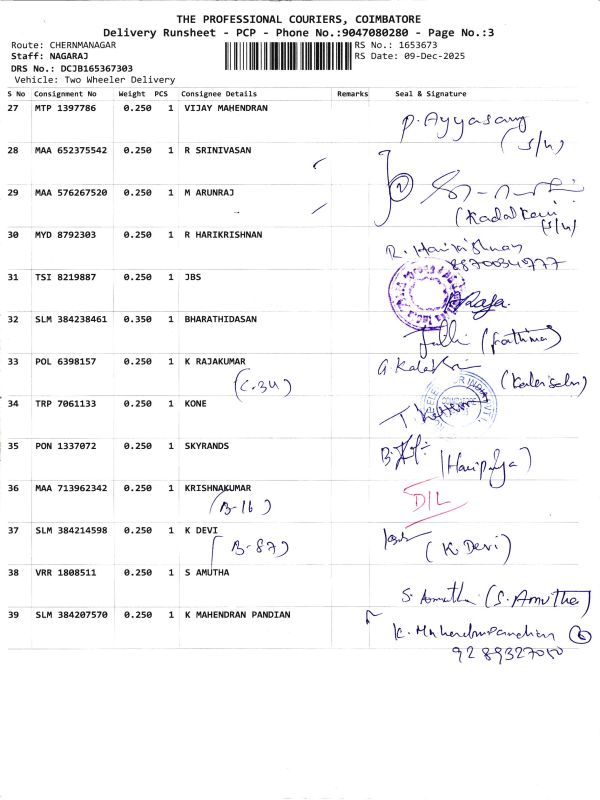 THE PROFESSIONAL COURIERS, COIMBATORE
Delivery Runsheet - PCP - Phone No.:9047080280 - Page No.:3
Route: CHERNMANAGAR RS No.: 1653673
Staff: NAGARAJ RS Date: 09-Dec-2025
DRS No.: DCJB165367303
Vehicle: Two Wheeler Delivery
S No Consignment No Weight PCS Consignee Details Remarks Seal & Signature
27 MTP 1397786 0.250 1 VIJAY MAHENDRAN
P. Ayyasamy
(S/n)
28 MAA 652375542 0.250 1 R SRINIVASAN
29 MAA 576267520 0.250 1 M ARUNRAJ
(S/n)
30 MYD 8792303 0.250 1 R HARIKRISHNAN
R. Harikrishnan
31 TSI 8219887 0.250 1 JBS
Raja.
32 SLM 384238461 0.350 1 BHARATHIDASAN
(Fathima)
33 POL 6398157 0.250 1 K RAJAKUMAR
(C.34)
34 TRP 7061133 0.250 1 KONE
35 PON 1337072 0.250 1 SKYRANDS
36 MAA 713962342 0.250 1 KRISHNAKUMAR
(B-16) D/L
37 SLM 384214598 0.250 1 K DEVI
(B-87) (K. Devi)
38 VRR 1808511 0.250 1 S AMUTHA
S. Amutha (S. Amutha)
39 SLM 384207570 0.250 1 K MAHENDRAN PANDIAN
K. Mahendran Pandian
9289327050